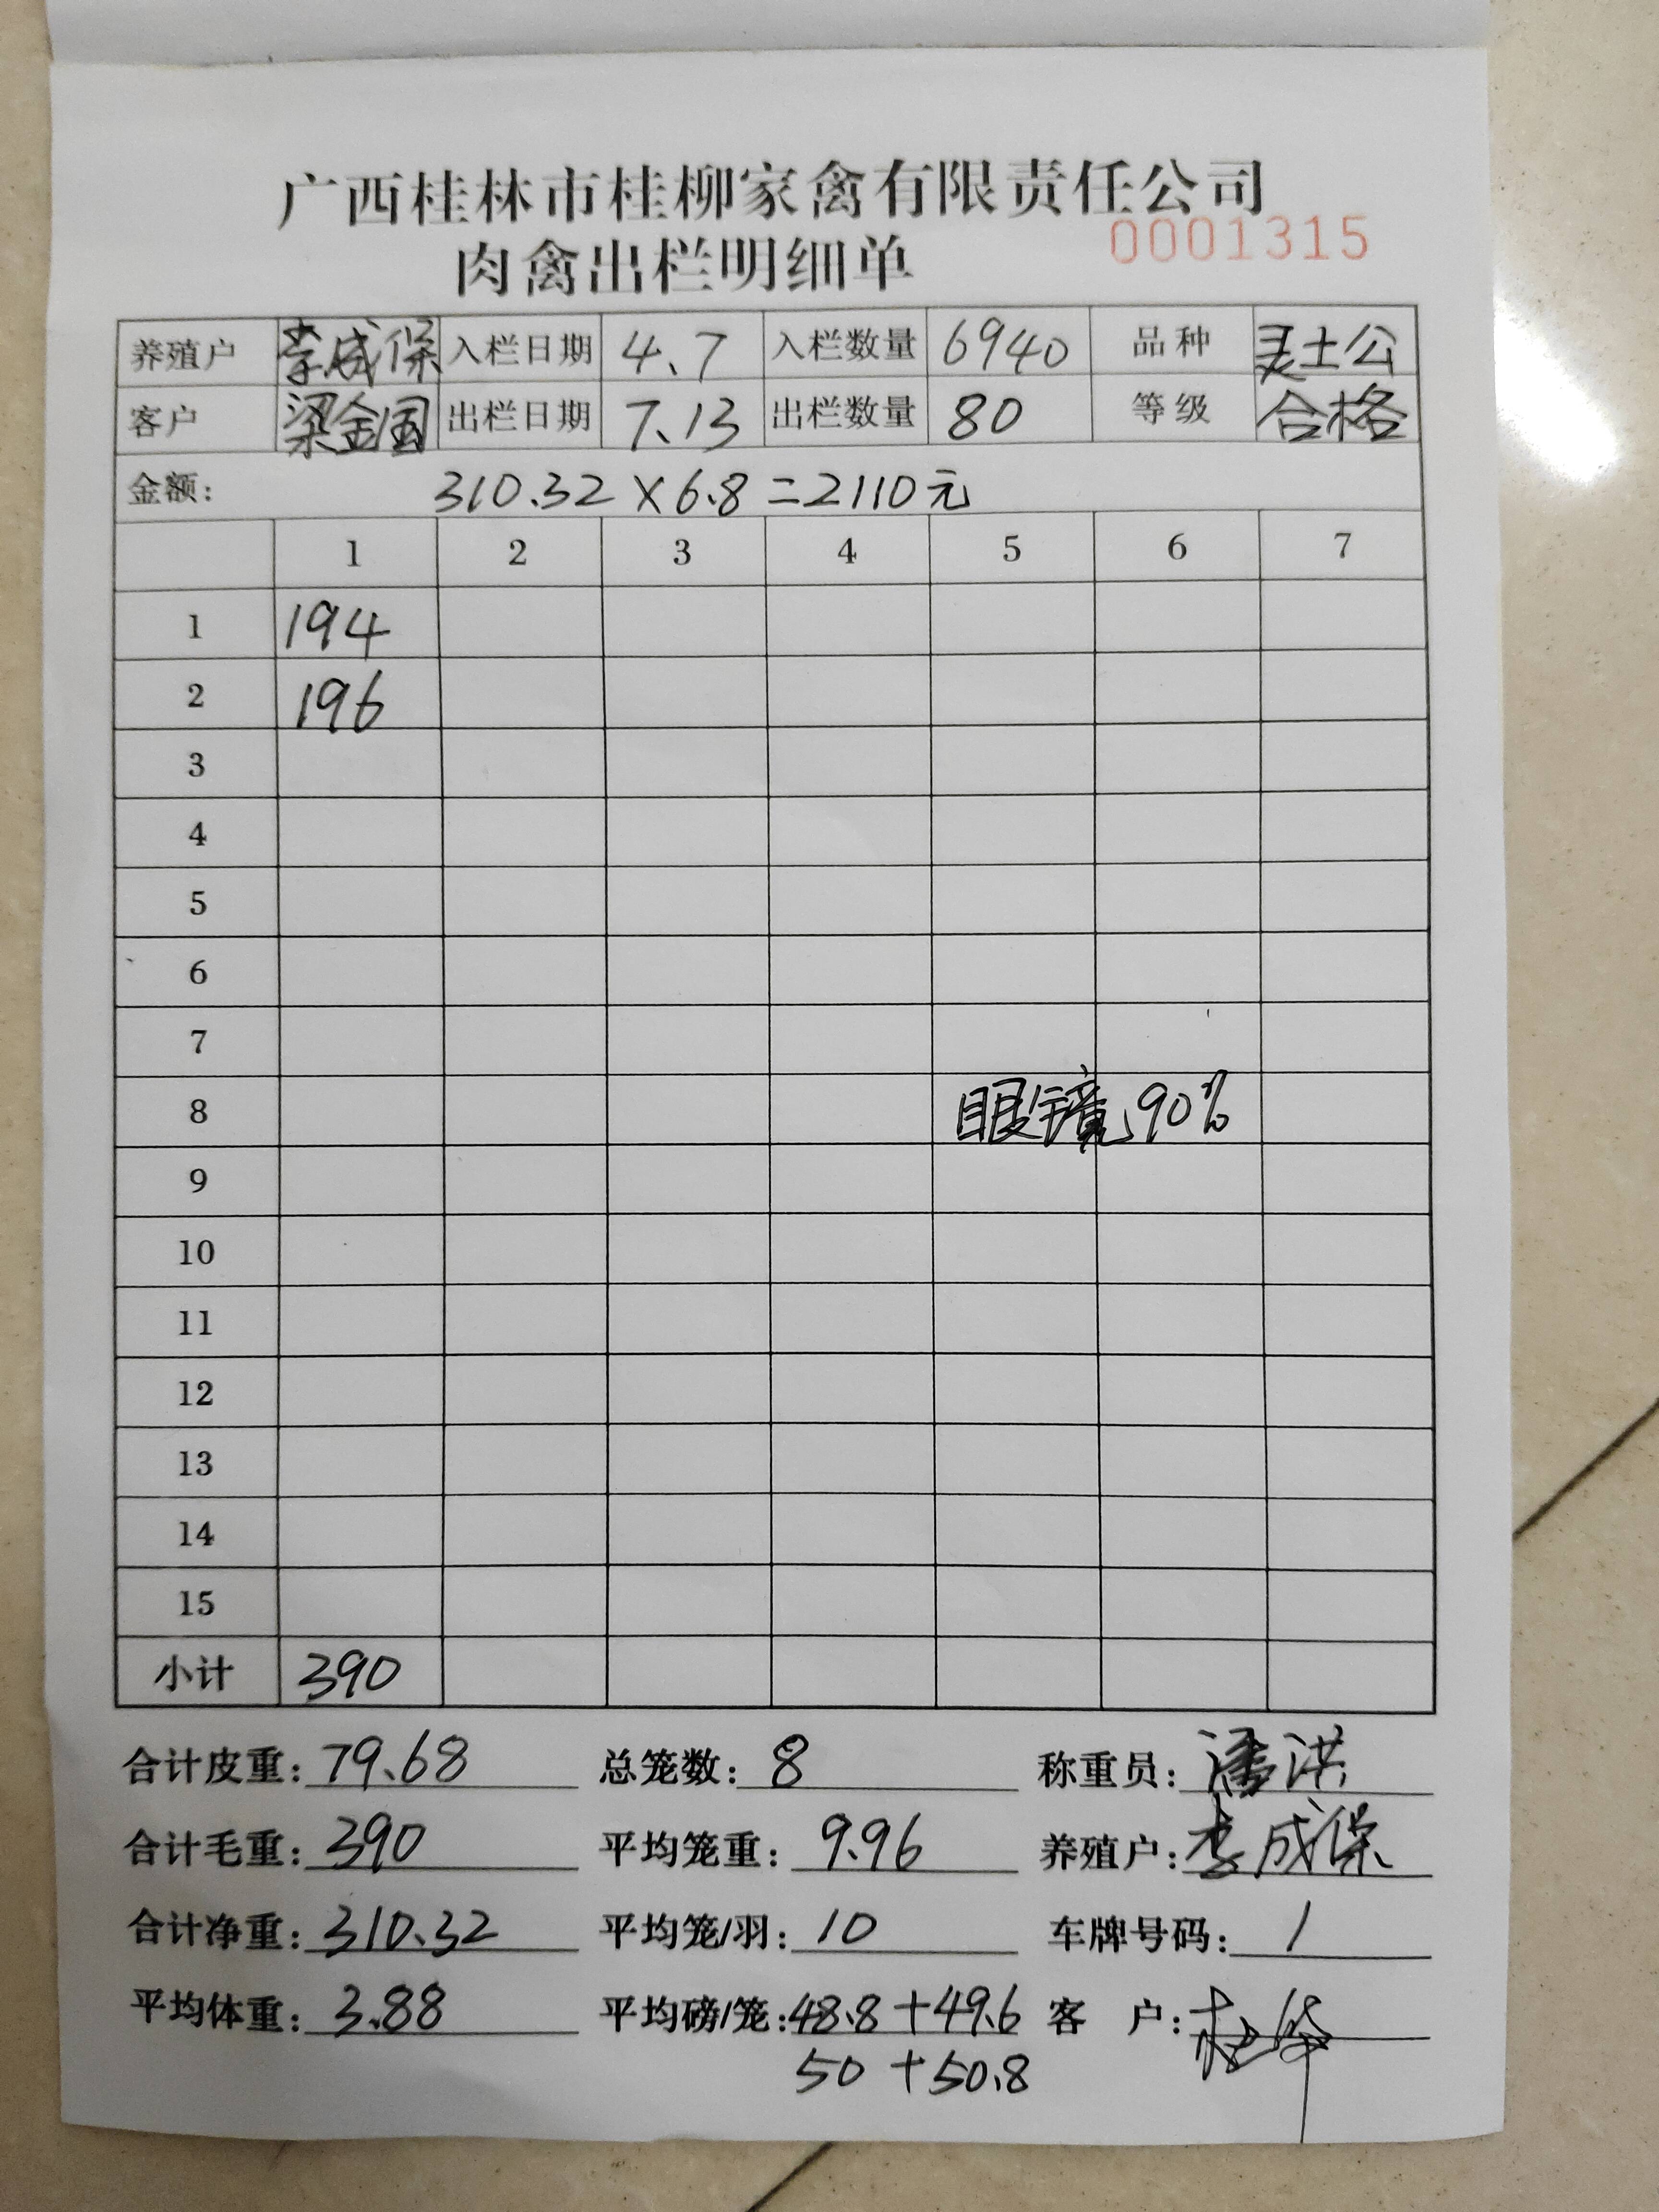 广西桂林市桂柳家禽有限责任公司
肉禽出栏明细单 0001315
养殖户 李成保 入栏日期 4.7 入栏数量 6940 品种 土公
客户 梁金国 出栏日期 7.13 出栏数量 80 等级 合格
金额: 310.32×6.8=2110元
1 2 3 4 5 6 7
1 194
2 196
3
4
5
6
7
8 眼镜90%
9
10
11
12
13
14
15
小计 390
合计皮重: 79.68 总笼数: 8 称重员: 潘洪
合计毛重: 390 平均笼重: 9.96 养殖户: 李成保
合计净重: 310.32 平均笼/羽: 10 车牌号码: 1
平均体重: 3.88 平均磅/笼: 48.8+49.6 客 户:
50+50.8